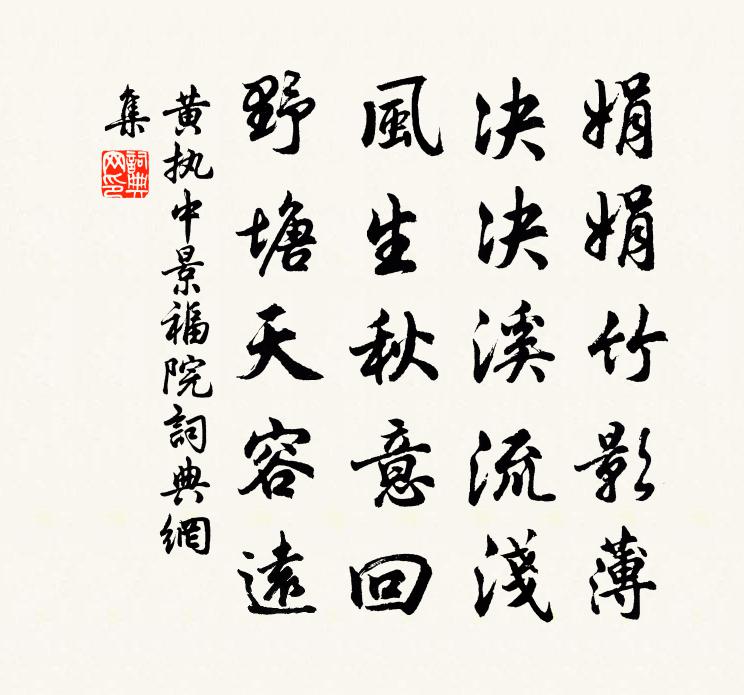 娟娟竹影薄
决决溪流淺
風生秋意回
野塘天容遠
黄执中景福院詞典網
集
詞典網印